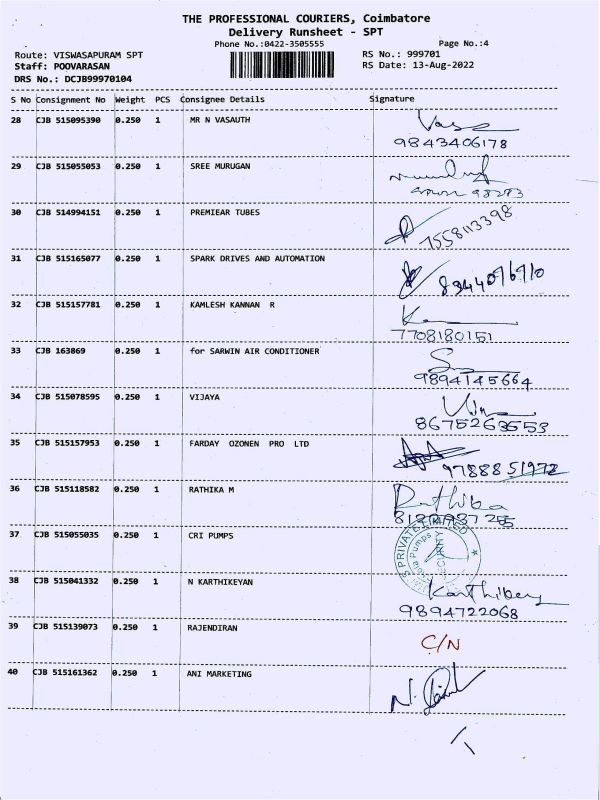 THE PROFESSIONAL COURIERS, Coimbatore
Delivery Runsheet - SPT
Phone No.:0422-3505555 Page No.:4
Route: VISWASAPURAM SPT RS No.: 999701
Staff: POOVARASAN RS Date: 13-Aug-2022
DRS No.: DCJB99970104
S No Consignment No Weight PCS Consignee Details Signature
28 CJB 515095390 0.250 1 MR N VASAUTH
9843406178
29 CJB 515055053 0.250 1 SREE MURUGAN
30 CJB 514994151 0.250 1 PREMIEAR TUBES
7558113398
31 CJB 515165077 0.250 1 SPARK DRIVES AND AUTOMATION
32 CJB 515157781 0.250 1 KAMLESH KANNAN R
7708180151
33 CJB 163869 0.250 1 for SARWIN AIR CONDITIONER
9894145664
34 CJB 515078595 0.250 1 VIJAYA
8675263553
35 CJB 515157953 0.250 1 FARDAY OZONEN PRO LTD
9788851972
36 CJB 515118582 0.250 1 RATHIKA M Rathika
37 CJB 515055035 0.250 1 CRI PUMPS
38 CJB 515041332 0.250 1 N KARTHIKEYAN
9894722068
39 CJB 515139073 0.250 1 RAJENDIRAN C/N
40 CJB 515161362 0.250 1 ANI MARKETING